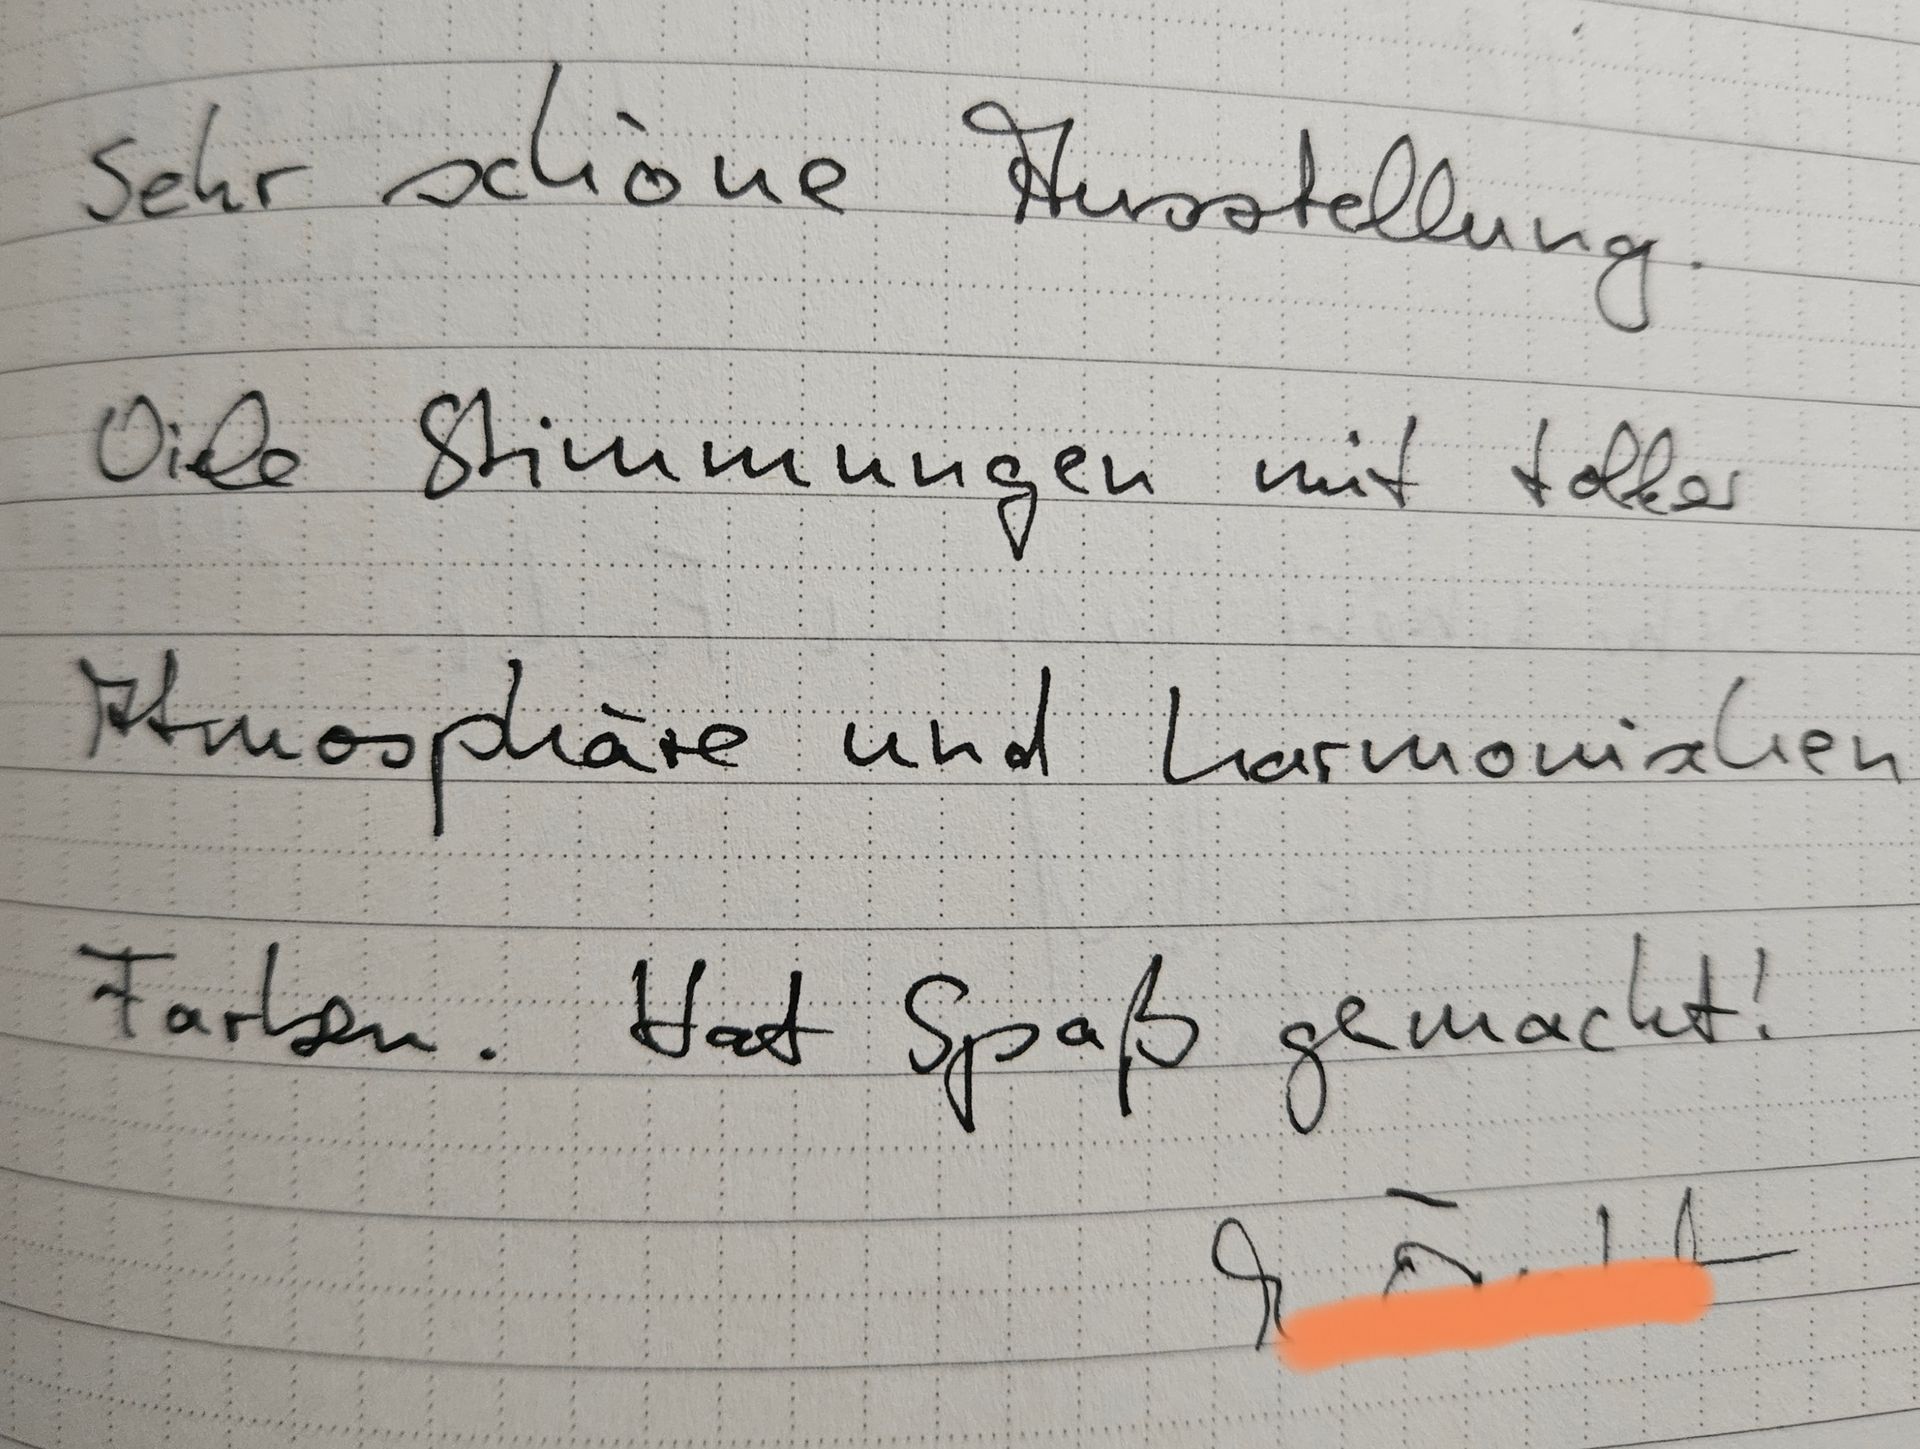 Sehr schöne Ausstellung.
Viele Stimmungen mit toller
Atmosphäre und harmonischen
Farben. Hat Spaß gemacht!